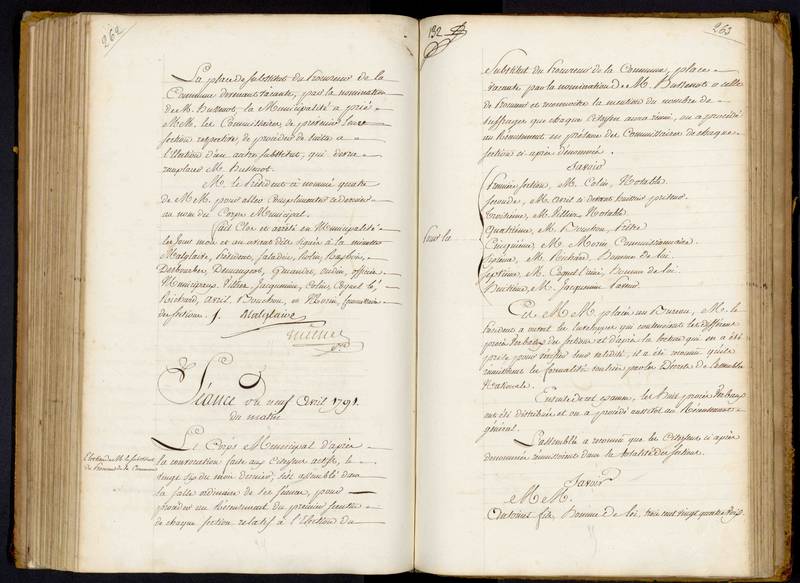 262
La place de Substitut du Procureur de la
Commune devenant vacante, par la nomination
de M. Bussenot, la Municipalité a prié
M.M. les Commissaires de prévenir leurs
section respective, de procéder de suite a
l'Election d'un autre Substitut, qui devra
remplacer M. Bussenot.
M. le Président a nommé quatre
de M.M. pour aller complimenter ce dernier
au nom du Corps Municipal.
fait Clos et arrêté en Municipalité
les Jour mois et an avant dits signé à la minute
Matglaive, Président, Saladin,
officiers
Municipaux. Villier, Jacquemin, Colin, Coquel l'é,
Richard, Avril, Bouchon, et Morin, Commissaires
de sections. /. Matglaive
Séance du neuf Avril 1791.
du matin
Election de M. le Substitut
du Procureur de la Commune
Le Corps Municipal d'après
la convocation faite aux citoyens actifs, le
du mois dernier, s'est assemblé dans
la salle ordinaire de ses séances, pour
procéder au Recensement du premier scrutin
de chaque section relatif à l'Election du
132
263
Substitut du Procureur de la Commune, place
vacante par la nomination de M. Bussenot a celle
de Procureur et reconnoitre la mention du nombre de
suffrages que chaque Citoyen aura réuni, on a procédé
au Recensement en présence des Commissaires de chaque
section ci après dénommés.
Savoir
Pour la
Première section, M. Colin, Notable
seconde, M. Avril
troisième, M. Villier Notable
Quatrième, M. Bouchon, Prêtre
Cinquième, M. Morin Commissionnaire.
sixième, M. Richard, Homme de loi.
septième, M. Coquel l'ainé, Homme de loi.
huitième, M. Jacquemin
Ces M.M. placés au Bureau, M. le
Président a ouvert les Enveloppes qui contenoient les différens
procès Verbaux des sections et d'après la lecture qui en a été
prise pour vérifier leur validité, il a été reconnu qu'ils
réunissent les formalités voulues par les Décrets de l'assemblée
Nationale.
Ensuite du dit examen, les dits procès Verbaux
ont été distribués et on a procédé aussitôt au Recensement
général.
L'assemblée a reconnu que les Citoyens ci après
dénommés réunissoient dans la totalité des sections.
Savoir
M.M.
fils, Homme de loi, trois cent vingt quatre Voix.